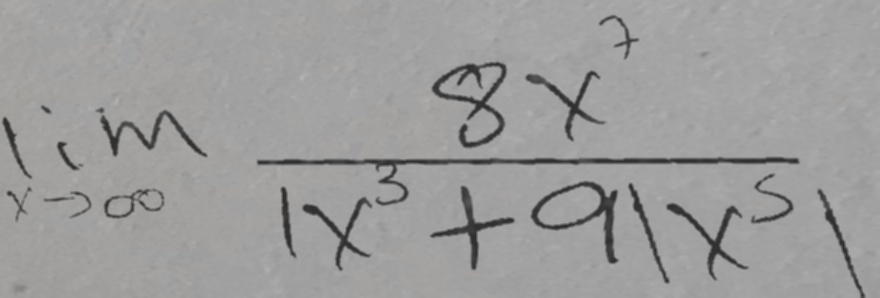 lim x→∞ 8x⁷ / |x³ + 9||x⁵|